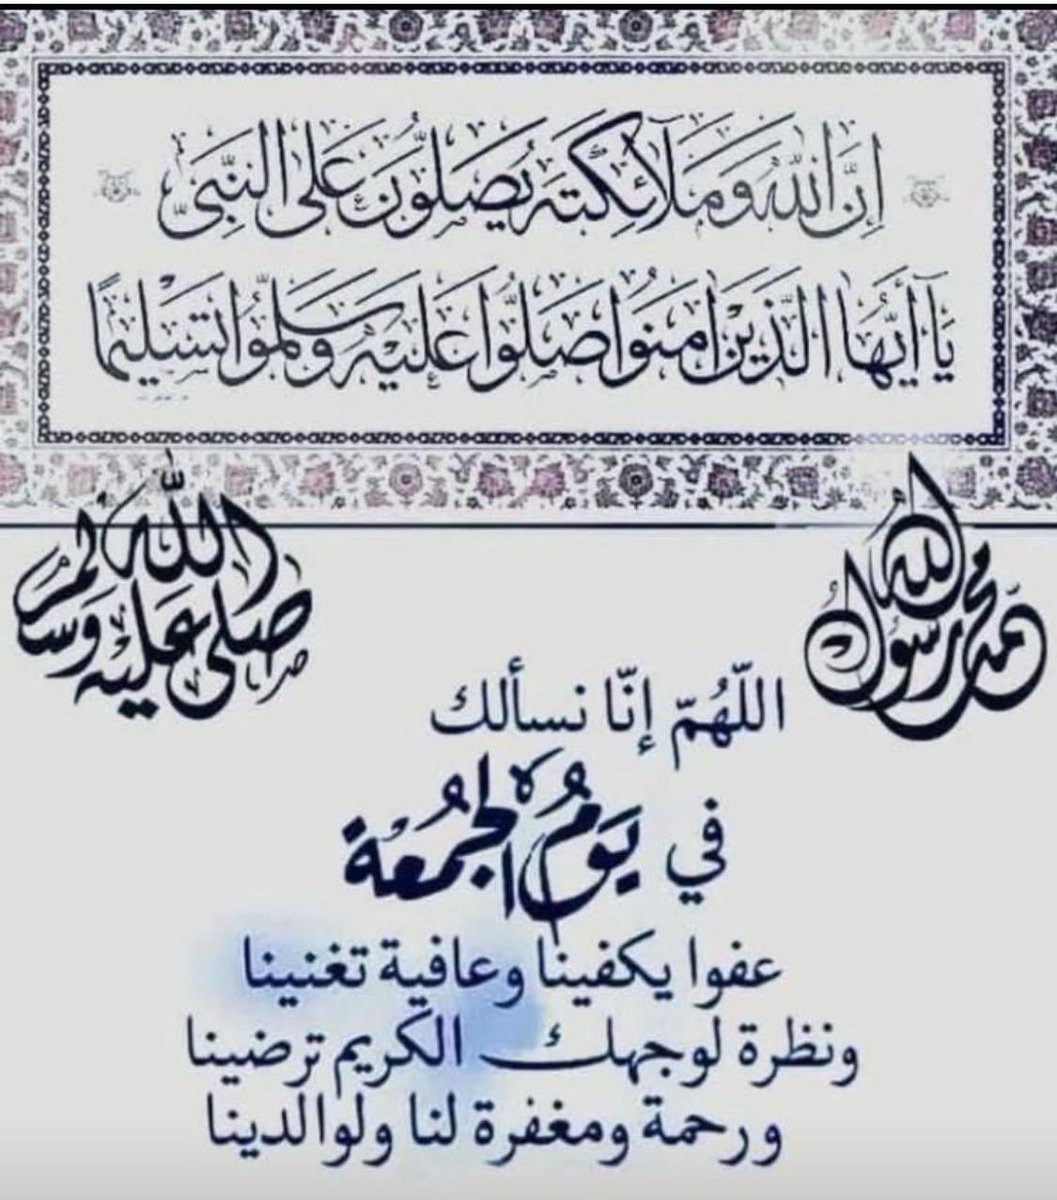 إِنَّ اللهَ وَمَلَآئِكَتَهُ يُصَلُّونَ عَلَى النَّبِيِّ
يَا أَيُّهَا الَّذِينَ امَنُوا صَلُّوا عَلَيْهِ وَسَلِّمُوا تَسْلِيمًا
محمد رسول الله
صلى الله عليه وسلم
اللّهُمّ إنّا نسألك
في يَومُ الجُمُعَة
عفوا يكفينا وعافية تغنينا
ونظرة لوجهك الكريم ترضينا
ورحمة ومغفرة لنا ولوالدينا